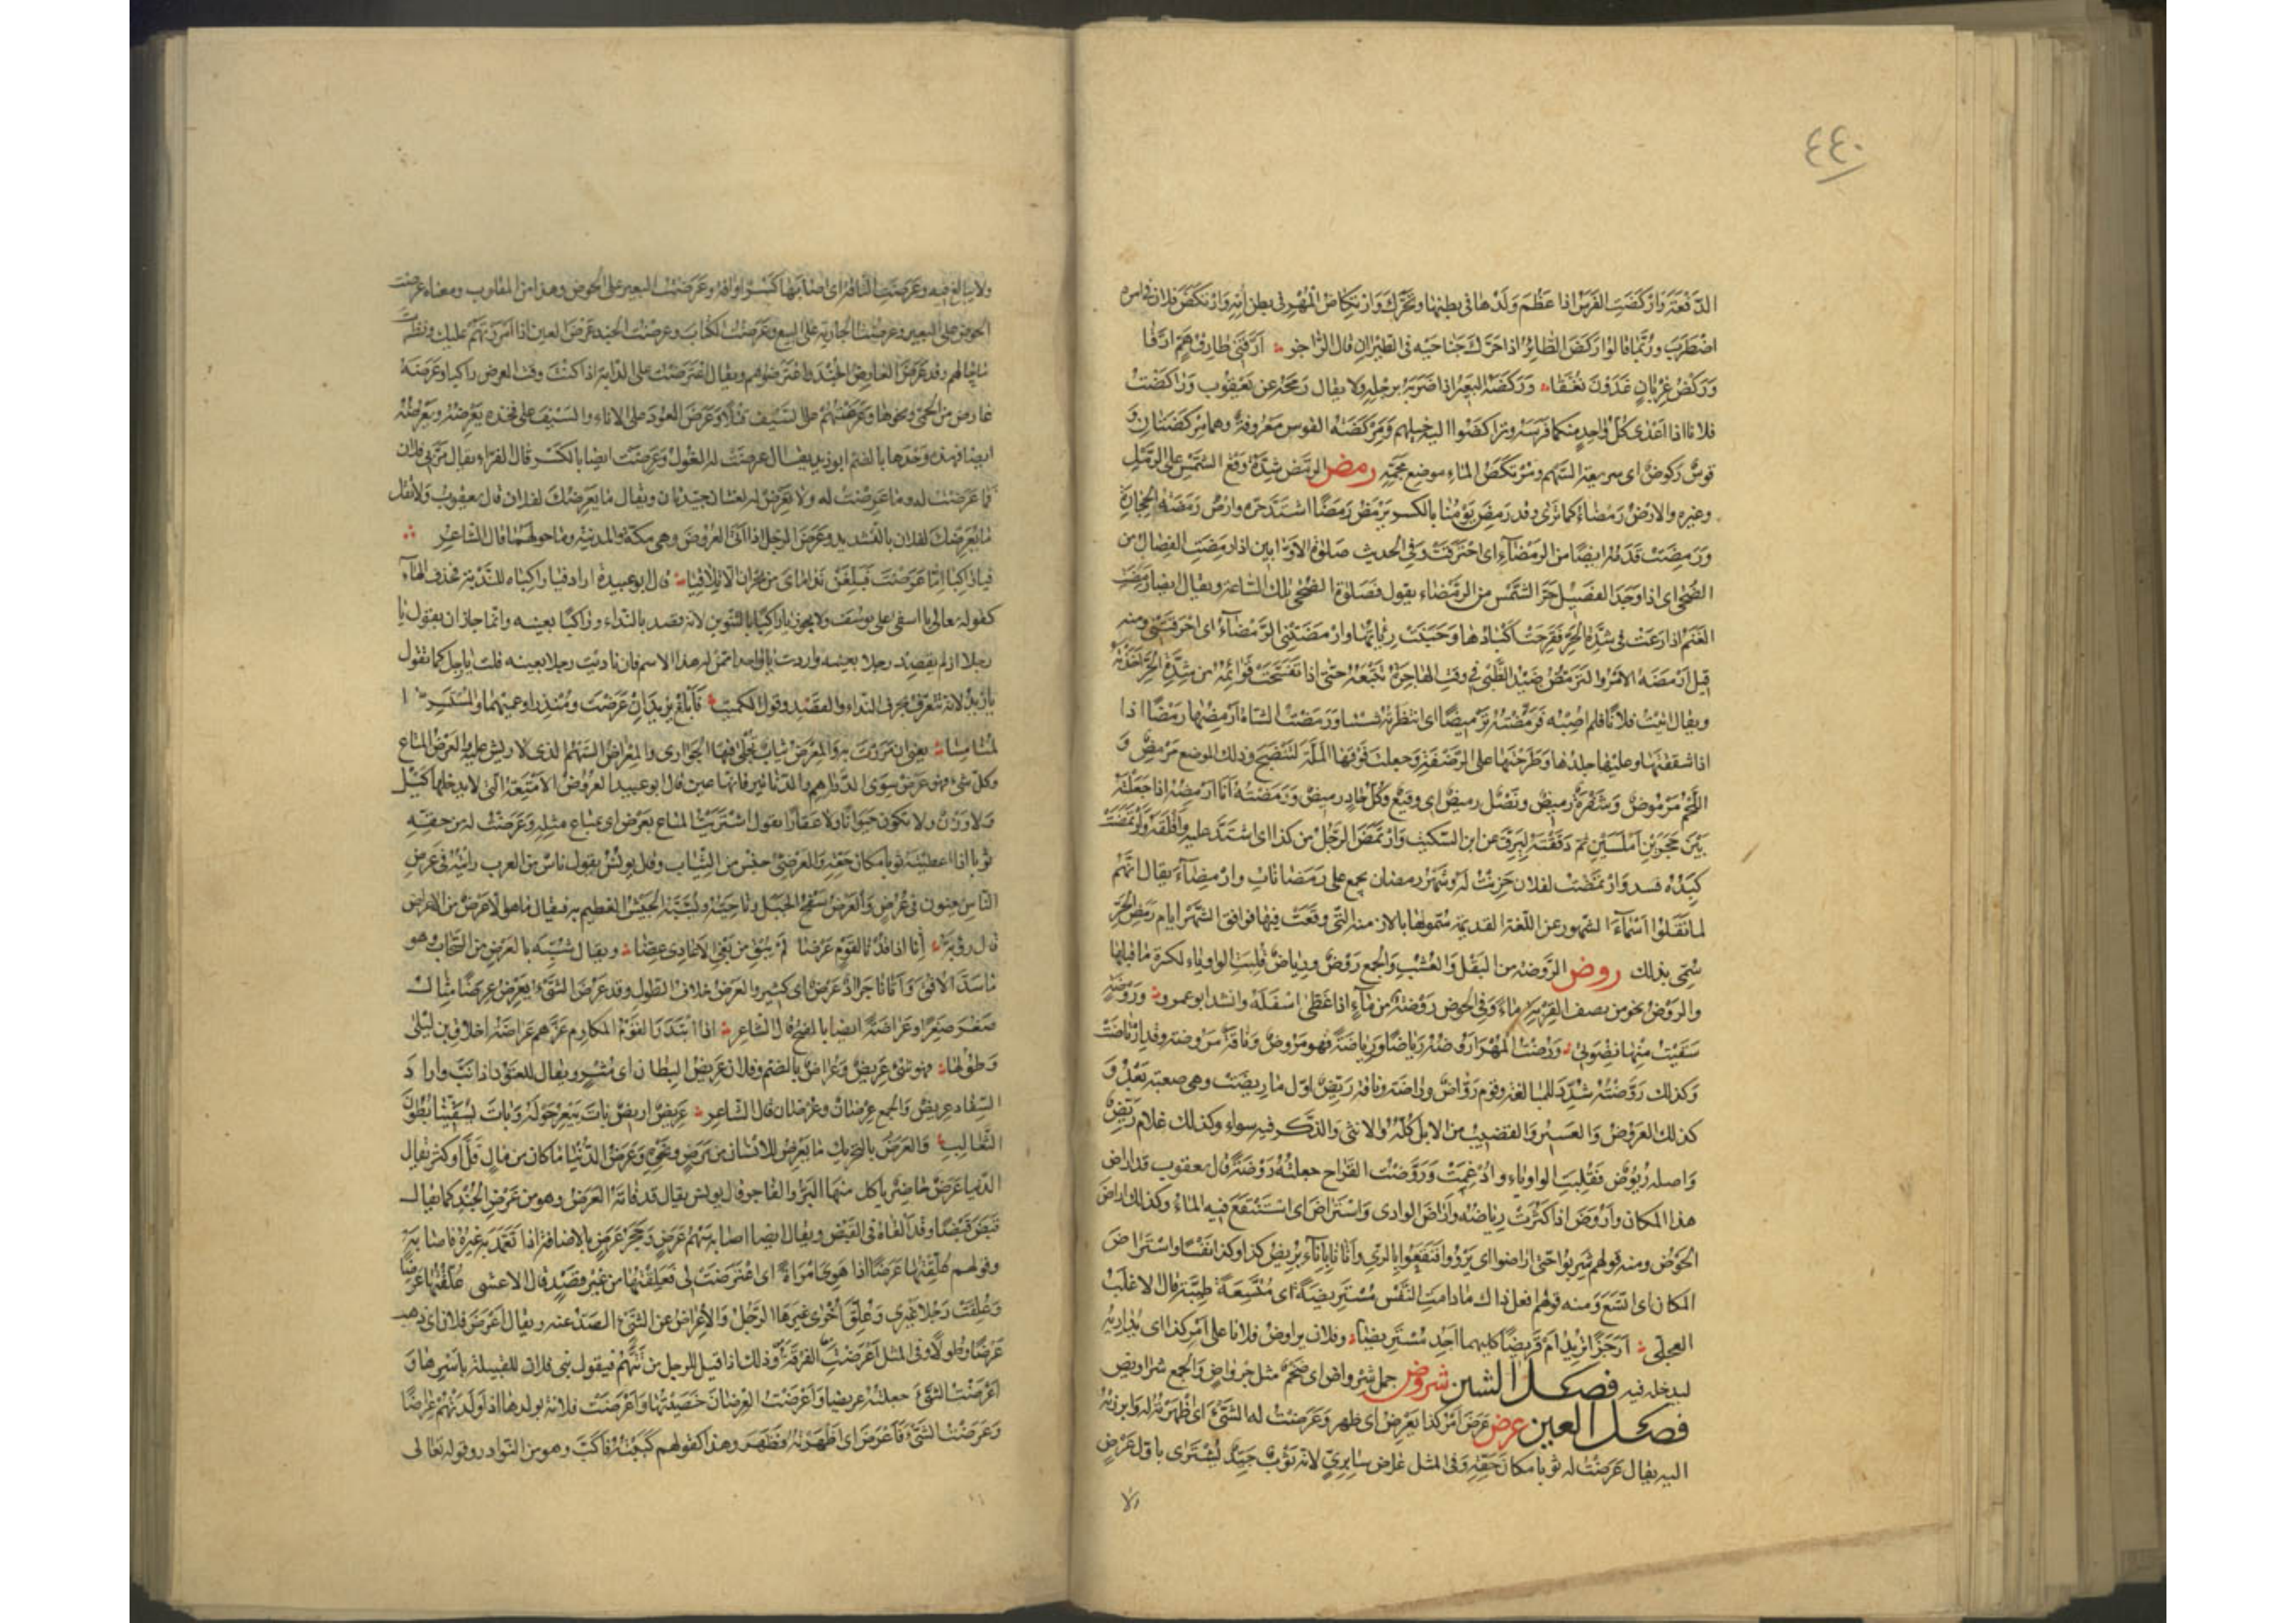 ٤٤٠
الدفعة وَارْكَضَتِ الفَرَس اذا عَظُمَ وَلَدُها فى بطنها وتحَرَّكَ وَارْتِكَاضُ المُهْرِ فى بطن اُمِّهِ وَارْتَكَضَ فلان فى امره
اضْطَرَبَ ورُبَّما قالوا رَكَضَ الطَّائِرُ اذا حَرَّكَ جَنَاحَيْه فى الطيران قال الراجز أَرَّقَنِى طارِقُ هَمٍّ ارَّقا
وَرَكْضُ غِرْبانٍ غَدَوْنَ نُغَّقَا وَرَكَضَهُ البَعِيرُ اذا ضَرَبَهُ برجله ولا يقال رَمَحَهُ عن يَعقوب وَرَاكَضْتُ
فلانا اذا اعْدَى كُلُّ واحِدٍ منكما فَرَسَهُ وتراكَضُوا اليه خيلهم وَمِرْكَضَةُ القوس مَعْرُوفَةٌ وهما مِرْكَضَتَانِ وَ
قوسٌ رَكوضٌ اى سريعة السَّهم ومُرْتَكَضُ المَاءِ موضع مَجَمِّهِ رمض الرَّمَضُ شِدَّةُ وَقْعِ الشَّمسِ على الرَّمْلِ
وغيره والارضُ رَمْضَاءُ كما ترى وقد رَمِضَ يَوْمُنا بالكسر يَرْمَضُ رَمَضًا اشتَدَّ حَرُّه وارضٌ رَمِضَةُ الحِجَارَةِ
وَرَمِضَتْ قَدَمُهُ ايضًا من الرَّمْضَاءِ اى احْتَرَقَتْ وَفِى الحديث صَلٰوةُ الاوّابين اذا رَمِضَتِ الفِصَالُ من
الضُّحٰى اى اذا وَجَدَ الفَصِيلُ حَرَّ الشَّمْسِ من الرَّمْضَاء يقول فصَلوةُ الضُّحٰى تلك السَّاعة ويقال ايضا رَمِضَتِ
الغَنَمُ اذا رَعَتْ فى شِدَّةِ الحَرِّ فَقَرِحَتْ اَكْبَادُها وَحَبِنَتْ رِئَاتُها وارْمَضَتْنِى الرَّمْضَاءُ اى احْرَقَتْنِى ومنه
قيل ارْمَضَهُ الامْرُ والتَرَمُّضُ صَيْدُ الظَّبْى فى وقت الهاجِرَةِ تَتْبَعُهُ حَتّٰى اذا تَفَسَّخَتْ قَوائِمُهُ من شِدَّةِ الحَرِّ اَخَذْتَهُ
ويقال اتيت فلانًا فلم اُصِبْه فَرَمَّضْتُهُ تَرْمِيضًا اى انتظرته شيئا وَرَمَضْتُ الشاةَ اَرْمِضُها رَمْضًا اذا
اذا شققتها وعليها جلدُها وَطَرَحْتَها على الرَّضْفَةِ وَجعلت فَوْقَها المَلَّةَ لتَنْضَجَ وذلك الموضع مَرْمِضٌ وَ
اللَّحْمُ مَرْمُوضٌ وَشَفْرَةٌ رَمِيضٌ ونَصْلٌ رميضٌ اى وقيعٌ وكُلُّ حادٍّ رميضٌ وَرَمَضْتُهُ اَنَا اَرْمِضُهُ اذا جَعَلْتَهُ
بَيْنَ حَجَرَيْنِ اَمْلَسَيْنِ ثم دَقَقْتَهُ لِيَرِقَّ عن ابن السكيت وَارْتَمَضَ الرَّجُلُ من كذا اى اشتَدَّ عليه وَاَقْلَقَهُ وَارْتَمَضَتْ
كَبِدُه فسدت وَارْتَمَضْتُ لفلان حَزِنْتُ لَهُ وشَهْرُ رمضان يجمع على رَمَضَانَات وارْمِضَاءَ يقال انّهُمْ
لما نَقَلُوا اَسْمَاءَ الشهور عن اللّغة القديمة سَمَّوْها بالازمنة التى وقَعَتْ فيها فوافق الشَّهْرُ ايام رَمَضِ الحَرِّ
سُمِّى بذلك روض الرَّوْضَةُ من البَقْلِ وَالعُشْبِ وَالجمع رَوْضٌ ورِيَاضٌ قُلِبَتِ الواو ياء لكسرة ما قبلها
والرَّوْضُ نحو من نصف القِرْبَةِ مَاءً وَفى الحوض رَوْضَةٌ من ماءٍ اذا غَطَّى اسْفَلَهُ وانشد ابوعمرو وَرَوْضَةٍ
سَقَيْتُ مِنْها نِضْوَتى وَرُضْتُ المُهْرَ ارُوضُهُ رِيَاضًا ورِيَاضَةً فهو مَرُوضٌ وَنَاقَةٌ مَرُوضةٌ وقد ارْتَاضَتْ
وَكذلك رَوَّضْتُهُ شُدِّدَ للمبالغة وقوم رُوَّاضٌ ورَاضَةٌ وناقة رَيِّضٌ اوّل ما رِيضَتْ وهى صعبة بَعْدُ وَ
كذلك العَرُوضُ وَالعَسِيرُ وَالقَضِيبُ من الابل كُلِّهِ وَالانثى وَالذَّكَرُ فيه سواء وكذلك غلام رَيِّضٌ
وَاصله رَيْوِضٌ فَقُلِبَتِ الواو ياء وادْغِمَتْ وَرَوَّضْتُ القَرَاحَ جعلتُهُ رَوْضَةً قال يعقوب قد اراض
هذا المكان وَارْوَضَ اذا كَثُرَتْ رِيَاضُه وَاَرَاضَ الوادى وَاسْتَرَاضَ اى اسْتَنْقَعَ فيه المَاءُ وكذلك اراضَ
الحَوْضُ ومنه قولهم شَرِبُوا حتى اراضوا اى رَوُوا فنَقَعُوا بالرِّىّ وَاَتَانَا بِاِنَاءٍ يُرِيضُ كذا وكذا نَفْسًا واسْتَرَاضَ
المكان اى اتَّسَعَ وَمنه قولهم افعل ذاك ما دامت النَّفْسُ مُسْتَرِيضَةً اى مُتَّسِعَةً طَيِّبَةً قال الاغلب
العجلى اَرَجَزًا تُرِيدُ اَمْ قَرِيضًا كليهما اَجِدُ مُسْتَرِيضًا وفلان يراوض فلانا على امر كذا اى يُدَارِيهِ
ليدخله فيه فصل الشين شروض جمل شرواض اى ضَخْمٌ مثل جِرْواضٍ وَالجمع شراويض
فصل العين عرض عَرَضَ له اَمْرُ كذا يَعْرِضُ اى ظهر وَعَرَضْتُ له الشَّىْءَ اى اظْهَرْتُهُ له وابرزتُهُ
اليه يقال عَرَضْتُ له ثوبا مكان حَقِّهِ وَفى المثل عَرْضَ سابِرِىٍّ لانه ثوبٌ جَيِّدٌ يُشْتَرٰى باوّل عَرْضٍ
ولا
ولا يبالغ فيه وعَرَضَتِ النَّاقة اى اصَابَها كسر او آفة وَعَرَضْتُ البعير على الحوض وهذا من المقلوب ومعناه عرضت
الحوض على البعير وعرضتُ الجارية على البيع وعَرَضْتُ الكتاب وعرضت الجند عَرْضَ العين اذا امررتهم عليك ونظرت
ما حالهم وقد عَرَضَ العارضُ الجُنْدَ واعْتَرَضُوا هم ويقال اعْتَرَضْتُ على الدابة اذا كنت وقت العرض راكبا وعَرَضَهُ
عارض من الحمّى ونحوها وعَرَضْتُهُمْ على السَّيْفِ قَتْلًا وعَرَضَ العود على الاناء والسَّيْفَ على فخذه يَعْرِضُهُ ويَعْرُضُهُ
ايضا فهذه وَحْدَها بالضم ابو زيد يقال عرضَتْ له الغُول وَعَرِضَتْ ايضا بالكَسْر قال الفراء يقال مَرَّ بى فلان
فما عَرَضْتُ له وما عَرِضْتُ له ولا تَعْرِضْ له لغتان جيّدتان ويقال ما يَعْرِضُكَ لفلان قال يعقوب وَلا تقل
ما يُعَرِّضُكَ لفلان بالتشديد وعَرَضَ الرجل اذا اَتَى العَرُوضَ وهى مكة والمدينة وما حولهما قال الشاعر
فيا راكبا اِمّا عَرَضْتَ فَبَلِّغَنْ نَدَامَاىَ من نَجْرَانَ اَلَّا تَلَاقِيَا قال ابو عبيدة اراد فيا راكباه للنُّدْبَةِ فحذف الهاء
كقوله تعالى يا اسفى على يوسف ولا يجوز يا راكبًا بالتنوين لانه قصد بالنداء راكبًا بعينه وانّما جاز ان يقول يا
رجلا اذا لم يقصد رجلا بعينه واردت يا واحدا ممن له هذا الاسم فان ناديت رجلا بعينه قلت يا رجل كما تقول
يا زيد لانه تعرَّف بحرف النداء والقصد وقول الكميت فَاَبْلِغْ يَزِيدَ اِنْ عَرَضْتَ ومُنْذِرًا وعميهما والمُسْتَسِرَّ ا
لمُنامِسَا يعنى ان مررت به والمِعْرَضُ ثيابٌ تُجْلَى فيها الجوارى والمِعْرَاضُ السَّهْمُ الذى لا ريش عليه والعَرْضُ المتاع
وكلّ شىء فهو عَرْضٌ سِوَى الدَّراهم والدَّنانير فانها عين قال ابو عبيد العُرُوضُ الامْتِعَةُ التى لا يدخلها كَيْلٌ
وَلا وَزْنٌ ولا يكون حَيَوَانًا ولا عَقَارًا يقول اشْتَرَيْتُ المتاع بعَرْضٍ اى بمتاع مثله وعَرَضْتُ له من حقّه
ثوبا اذا اعطيته ثوبا مكان حَقِّهِ والعَرْضِىُّ جنس من الثياب وقال يونس يقول ناسٌ من العرب رايته فى عَرْضِ
النّاس يعنون فى عُرْضٍ وَالعَرْضُ سَفْحُ الجَبَلِ وناحِيَتُهُ ويُشَبَّهُ الجَيْشُ العظيم به فيقال ما هو الّا عَرْضٌ من الاعراض
قال رؤبة اِنَّا اذا قُدْنَا لقَوْمٍ عَرْضًا لَمْ نُبْقِ من بَغْىِ الاَعَادِى عِضَّا ويقال شُبِّهَ بالعَرْض من السَّحاب وهو
ما سَدَّ الافق وَاَتَانَا جَرَادٌ عَرْضٌ اى كثير والعَرْضُ خلاف الطول وقد عَرُضَ الشَّىْءُ يَعْرُضُ عِرَضًا مثال
صَغُرَ صِغَرًا وَعَرَاضَةً ايضا بالفتح قال الشاعر اذا ابْتَدَرَ القَوْمُ المكارم عَزَّهم عَرَاضَةُ اخلاقِ بن لَيْلٰى
وَطُولُها فهو شىءٌ عَرِيضٌ وعُرَاضٌ بالضّم وفلان عَرِيضُ البطان اى مُثْرٍ ويقال للعَتُود اذا نَبَّ واراد
السِّفاد عريضٌ وَالجمع عِرْضانٌ وعُرْضان قال الشاعر عَرِيضٌ اريضٌ باتَ يَيْعِرُ حَوْلَهُ وَباتَ يُسَقِّينا بُطُونَ
الثَّعَالِبِ وَالعَرَضُ بالتحريك ما يَعْرِضُ للانْسان من مَرَضٍ ونحوه وَعَرَضُ الدُّنْيا مَا كان من مالٍ قَلَّ اَوْ كثر يقال
الدّنيا عَرَضٌ حاضِرٌ ياكل منها البَرُّ والفاجر قال يونس يقال قد فاتَهُ العَرَضُ وهو من عَرْضِ الجُنْدِ كما يقال
قَبَضَ قَبْضًا وقد القاه فى القَبَض ويقال ايضا اصابه سَهْمُ عَرَضٍ وحَجَرُ عَرَضٍ بالاضافة اذا تُعُمِّدَ به غيرُهُ فاصابه
وقولهم عُلِّقْتُها عَرَضًا اذا هَوِىَ امْرَاةً اى اعْتَرَضَتْ لى فَعَلِقْتُها من غَيْرِ قَصْدٍ قال الاعشى عُلِّقْتُها عَرَضًا
وَعُلِّقَتْ رَجُلًا غَيْرِى وَعُلِّقَ اُخْرٰى غيرَها الرَّجُلُ وَالاِعْرَاضُ عن الشّىْء الصَدُّ عنه ويقال اَعْرَضَ فلان اى ذهب
عَرْضًا وطولًا وفى المثل اَعْرَضَتِ القِرْفَةُ وذلك اذا قيل للرجل من تَتَّهِمُ فيقول بنى فلان للقبيلة باَسْرِها وَ
اَعْرَضْتُ الشَّىْءَ جعلتُهُ عريضا وَاَعْرَضْتُ العِرْضَانَ خَصَيْتُها وَاَعْرَضَتْ فلانة بولدها اذا وَلَدَتْهُمْ عِرَاضًا
وَعَرَضْتُ الشَّىْءَ فَاَعْرَضَ اى اَظْهَرْتُهُ فظَهَرَ وهذا كقولهم كَبَبْتُهُ فاكَبَّ وهو من النوادر وقوله تعالى